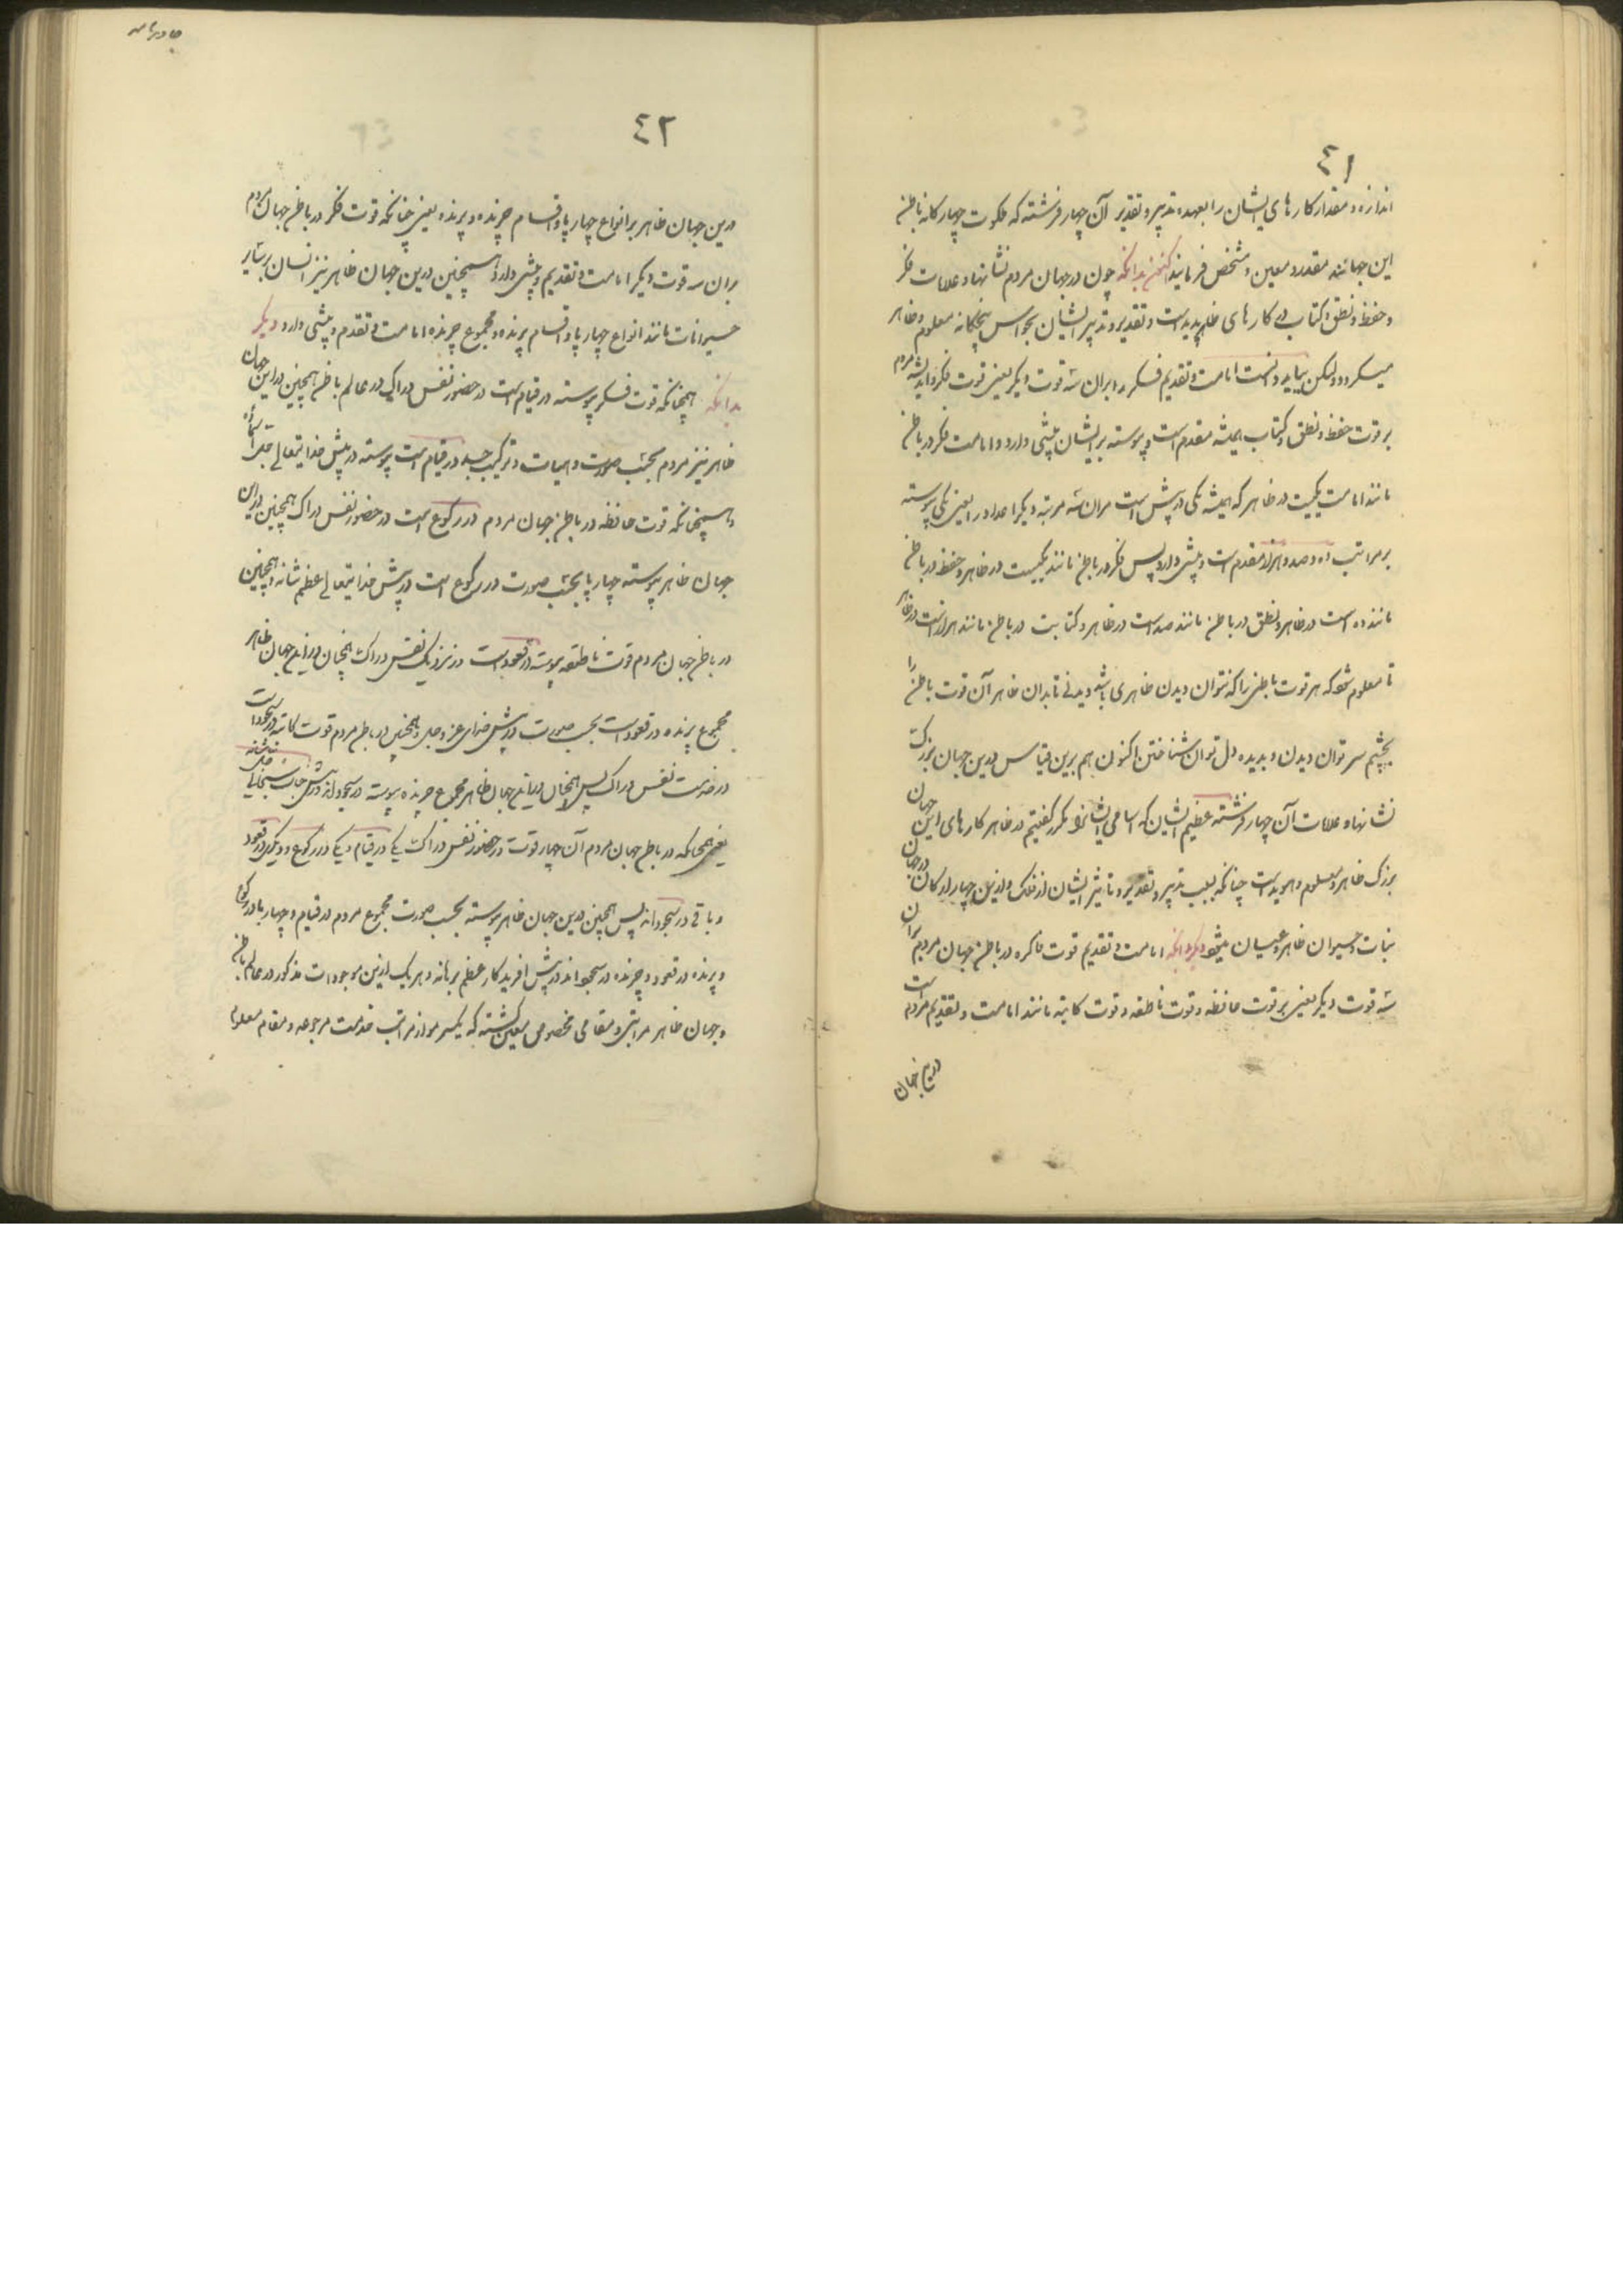 ٤١
اندازه و مقدار کارهای ایشان را بعهده تدبیر و تقدیر آن چهار فرشته که ملکوت چهارکانه باطن
این جهانند مقدر و معین و مشخص فرمایند اکنون بدانکه چون در جهان مردم نشانها و علامات فکر
و حفظ و نطق و کتاب در کارهای ظاهر پدید است و تقدیر و تدبیر ایشان بحواس پنجکانه معلوم و ظاهر
میکردد و لیکن بباید دانست امامت و تقدیم فکر بر آن سه قوت دیکر یعنی قوت فکر و اندیشه مردم
بر قوت حفظ و نطق و کتاب همیشه مقدم است و پیوسته بر ایشان پیشی دارد و امامت فکر در باطن
مانند امامت یکیست در ظاهر که همیشه یکی در پیش است مر آن سه مرتبه دیکر اعداد را یعنی یکی پیوسته
بر مراتب ده و صد و هزار مقدم است و پیشی دارد پس فکر در باطن مانند یکیست در ظاهر و حفظ در باطن
مانند ده است در ظاهر و نطق در باطن مانند صد است در ظاهر و کتابت در باطن مانند هزار است در ظاهر
تا معلوم شود که هر قوت باطنی را که نتوان دیدن ظاهری باشد دیدنی تا بدان ظاهر آن قوت باطن را
بچشم سر توان دیدن و بدیده دل توان شناختن اکنون هم برین قیاس درین جهان بزرک
نشانها و علامات آن چهار فرشته عظیم الشان که اسامی ایشانرا مکرر کفتیم در ظاهر کارهای این جهان
بزرک ظاهر و معلوم و هویداست چنانکه بسبب تدبیر و تقدیر و تاثیر ایشان از فلک و ازین چهار ارکان در جهان
نبات و حیوان ظاهر و عیان میشود دیکر بدانکه امامت و تقدیم قوت فاکره در باطن جهان مردم بر آن
سه قوت دیکر یعنی بر قوت حافظه و قوت ناطقه و قوت کاتبه مانند امامت و تقدیم مردم است
درین جهان
٤٢
درین جهان ظاهر بر انواع چهارپا و اقسام چرنده و پرنده یعنی چنانکه قوت فکر در باطن جهان مردم
بران سه قوت دیکر امامت و تقدیم و پیشی دارد همچنین درین جهان ظاهر نیز انسان بر سایر
حیوانات مانند انواع چهارپا و اقسام پرنده و مجموع چرنده امامت و تقدم و پیشی دارد دیکر
بدانکه همچنانکه قوت فکر پیوسته در قیام است در حضور نفس دراک در عالم باطن همچنین در این جهان
ظاهر نیز مردم بحسب صورت و هیات و ترکیب جسد در قیام است پیوسته در پیش خدایتعالی جل اسماؤه
و همچنانکه قوت حافظه در باطن جهان مردم در رکوع است در حضور نفس دراک همچنین در این
جهان ظاهر پیوسته چهارپا بحسب صورت در رکوع است در پیش خدایتعالی عظم شانه و همچنین
در باطن جهان مردم قوت ناطقه پیوسته در قعود است در نزدیک نفس دراک همچنان در این جهان ظاهر
مجموع پرنده در قعود است بحسب صورت در پیش خدای عز و جل و همچنین در باطن مردم قوت کاتبه در سجود است
در خدمت نفس دراک پس همچنان در این جهان ظاهر مجموع چرنده پیوسته در سجودند در پیش جناب سبحانی جل شانه
یعنی همچنانکه در باطن جهان مردم آن چهار قوت در حضور نفس دراک یکی در قیام و یکی در رکوع و دیکری در قعود
و باقی در سجودند پس همچنین درین جهان ظاهر پیوسته بحسب صورت مجموع مردم در قیام و چهارپا در رکوع
و پرنده در قعود و چرنده در سجودند در پیش آفریدکار عظم برهانه و هر یک ازین موجودات مذکور در عالم باطن
و جهان ظاهر مراتبی و مقامی مخصوص و معین کشته که یکسر مو از مراتب خدمت مرجوعه و مقام معلوم